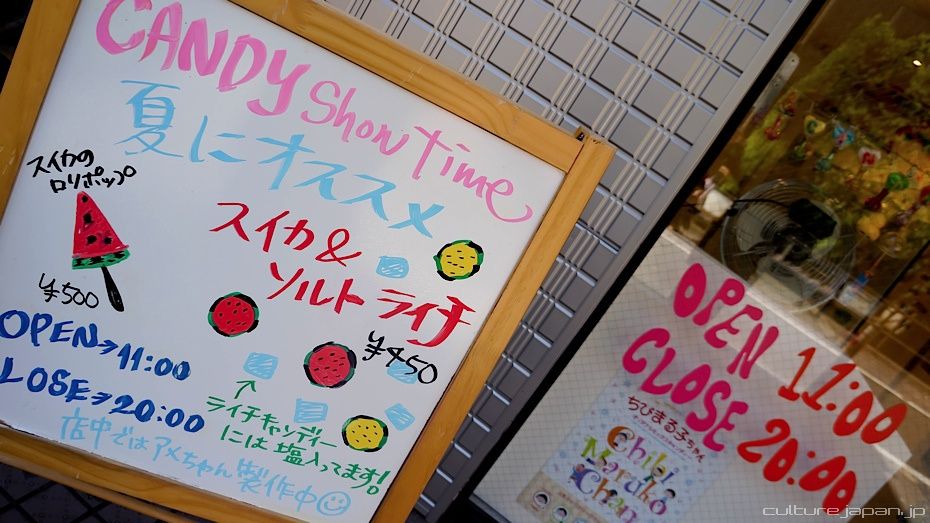 CANDY Show Time
夏にオススメ
スイカの
ロリポップ
¥500
スイカ&
ソルト ライチ
¥450
OPEN→11:00
CLOSE→20:00
↑
ライチキャンディー
には塩入ってます!
店中ではアメちゃん製作中☺
OPEN 11:00
CLOSE 20:00
ちびまる子ちゃん
Chibi
Maruko
Chan
culturejapan.jp